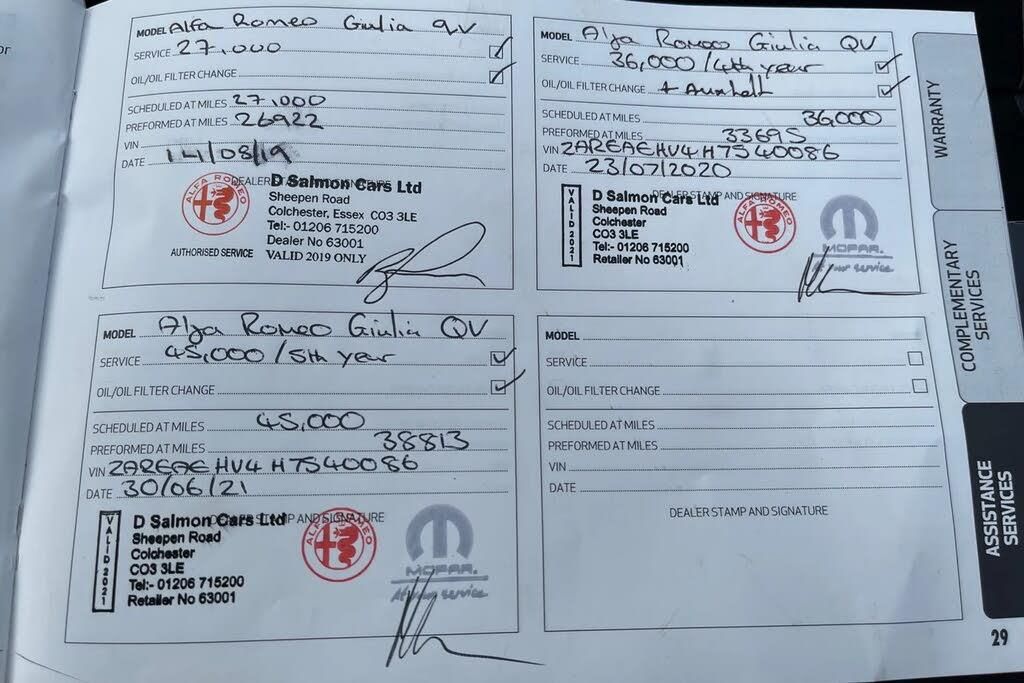 MODEL Alfa Romeo Giulia QV
SERVICE 27,000
OIL/OIL FILTER CHANGE
SCHEDULED AT MILES 27,000
PREFORMED AT MILES 26922
VIN
DATE 14/08/19
DEALER STAMP AND SIGNATURE
ALFA ROMEO
D Salmon Cars Ltd
Sheepen Road
Colchester, Essex CO3 3LE
Tel:- 01206 715200
Dealer No 63001
AUTHORISED SERVICE VALID 2019 ONLY
MODEL Alfa Romeo Giulia QV
SERVICE 36,000 / 4th year
OIL/OIL FILTER CHANGE + Auxbelt
SCHEDULED AT MILES 36000
PREFORMED AT MILES 33695
VIN ZAREAEHV4H7540086
DATE 23/07/2020
DEALER STAMP AND SIGNATURE
VALID 2021
D Salmon Cars Ltd
Sheepen Road
Colchester
CO3 3LE
Tel:- 01206 715200
Retailer No 63001
ALFA ROMEO
MOPAR.
At your service
MODEL Alfa Romeo Giulia QV
SERVICE 45,000 / 5th year
OIL/OIL FILTER CHANGE
SCHEDULED AT MILES 45,000
PREFORMED AT MILES 38813
VIN ZAREAEHV4H7540086
DATE 30/06/21
DEALER STAMP AND SIGNATURE
VALID 2021
D Salmon Cars Ltd
Sheepen Road
Colchester
CO3 3LE
Tel:- 01206 715200
Retailer No 63001
ALFA ROMEO
MOPAR.
At your service
MODEL
SERVICE
OIL/OIL FILTER CHANGE
SCHEDULED AT MILES
PREFORMED AT MILES
VIN
DATE
DEALER STAMP AND SIGNATURE
WARRANTY
COMPLEMENTARY
SERVICES
ASSISTANCE
SERVICES
29